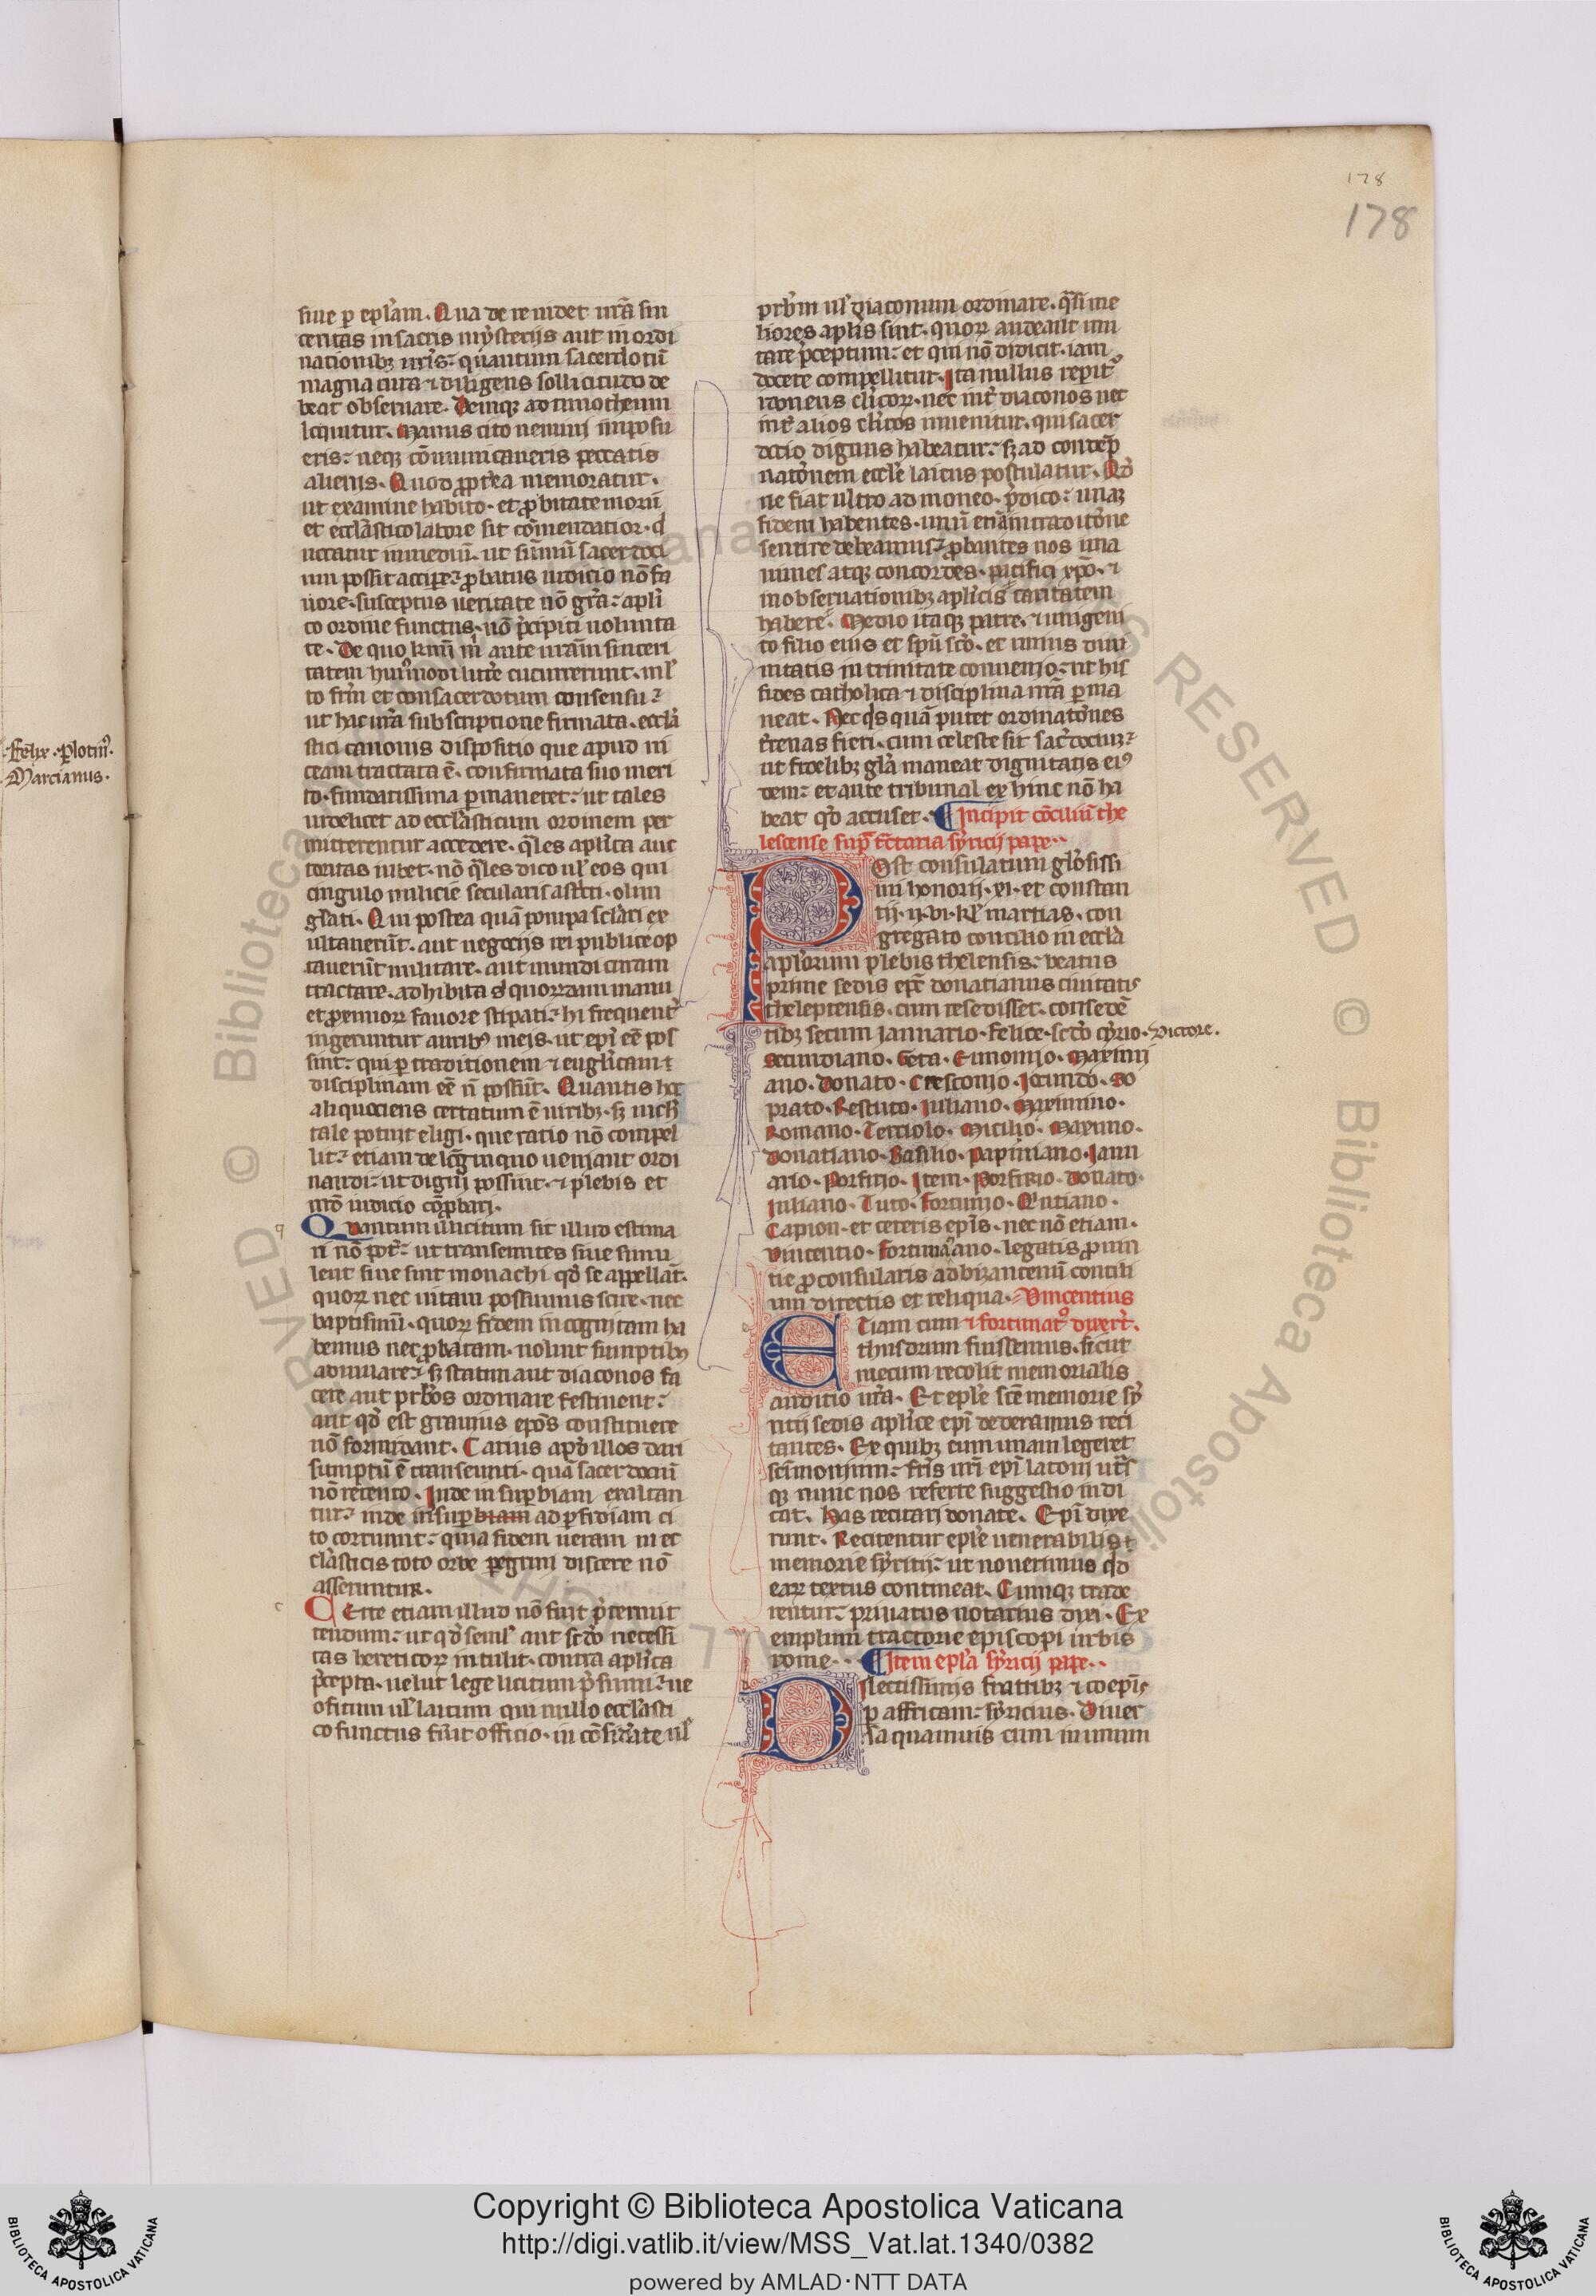 178
178
siue p epl'am. Qua de re uidet ur̃a sin
ceritas in sacris mẏsterijs aut in ordi
nationibꝫ ur̃is: quantum sacerdotũ
magna cura ⁊ diligens sollicitudo de
beat obseruare. Deniqꝫ ad timotheum
loquitur. Manus cito nemini imposu
eris: neqꝫ cõmunicaueris peccatis
alienis. Quod ꝓpt'ea memoratur.
ut examine habito. et ꝓbitate morũ
et eccl'astico labore sit cõmendatior. q
uocatur in mediũ. ut sũmũ sacerdoci
um possit accipe: ꝓbatus iudicio nõ fa
uore. susceptus ueritate nõ gr̃a: apl'i
co ordine functus. nõ p̃cipiti uolunta
te.
tatem hui'modi litt'e cucurrerunt. ml'
to fr̃m et consacerdotum consensu:
ut hac ur̃a subscriptione firmata. eccl'a
stici canonis dispositio que apud ni
ceam tractata ẽ. confirmata suo meri
to. fundatissima p̱maneret: ut tales
uidelicet ad eccl'asticum ordinem per
mitterentur accedere. q̃les apl'ica auc
toritas iubet. nõ q̃les dico ul' eos qui
cingulo milicie secularis astricti. olim
gl'ati. Qui postea quã pompa sc'lari ex
ultauerũt. aut negocijs rei publice op
tauerũt militare. aut mundi curam
tractare. adhibita s' quorꝝdam manu
et ꝓximorꝝ fauore stipati: hi frequent'
ingeruntur aurib' meis. ut epĩ eẽ pos
sint: qui p̱ traditionem ⁊ euãgl'icam ⁊
disciplinam eẽ ñ possũt. Quantis hoc
aliquociens certatum ẽ uiribꝫ. sꝫ nich'
tale potuit eligi. que ratio nõ compel
lit: etiam de in quo ueniant ordi
nandi: ut digni possint. ⁊ plebis et
nr̃o iudicio cõprobari.
q
Quantum illicitum sit illud estima
ri nõ pot': ut transeuntes siue simu
lent siue sint monachi qđ se appellãt.
quorꝝ nec uitam possumus scire. nec
baptismũ. quorꝝ fidem incognitam ha
bemus nec ꝓbatam. nolint sumptibꝫ
adiuuare: sꝫ statim aut diaconos fa
cere aut pr̃bos ordinare festinent:
aut qđ est grauius ep̃os constituere
nõ formidant. Carius apđ illos dari
sumptũ ẽ transeunti. quã sacerdociũ
nõ retento. Inde in sup̱biam exaltan
tur: inde insup̱biam ad p̱fidiam ci
to corruunt: quia fidem ueram in ec
cl'asticis toto orbe pegrini discere nõ
asseruntur.
c
Certe etiam illud nõ fuit p̃termit
tendum: ut qđ semł aut scđo necessi
tas hereticorꝝ intulit. contra apl'ica
p̃cepta. uelut lege licitum p̃sumi: ne
ofitum ul' laicum qui nullo eccl'asti
co functus fu'it officio. in cõsid'ate ul'
pr̃bm ul' diaconum ordinare. q̃si me
liores apl'is sint. quorꝝ audeant imi
tare p̃ceptum: et qui nõ didicit. iam
docere compellitur. Ita nullus rep̱it'
idoneus cl'icorꝝ. nec int' diaconos nec
int' alios cl'icos inuenitur. qui sacer
dotio dignus habeatur: sꝫ ad condẽp
nat'onem eccl'e laicus postulatur. Qđ
ne fiat ultro ad moneo. p̃dico: unaꝫ
fidem habentes. unũ etiam in tradit'one
sentire debeamus: ꝓbantes nos una
nimes atqꝫ concordes. pacifici xp̃o. ⁊
in obseruationibꝫ apl'icis caritatem
habere. Medio itaqꝫ patre. ⁊ unigeni
to filio eius et spũ sc̃o. et unius diui
nitatis in trinitate conuenio: ut his
fides catholica ⁊ disciplina nr̃a p̱ma
neat. Nec q's quã putet ordinat'ones
t'renas fieri. cum celeste sit sac'dociuꝫ:
ut fidelibꝫ gl'a maneat dignitatis ei'
dem: et ante tribunal ex hinc nõ ha
beat qđ accuset. ¶ Incipit cõciliũ the
lescense sup̱ sẏricij pape..
Post consulatum gl'osissi
mi honorij. xi. et constan
tij. ij. vi. kł martias. con
gregato concilio in eccl'a
apl'orum plebis thelensis: beatus
prime sedis epẽ donatianus ciuitatis
theleptensis. cum resedisset. consedẽ
tibꝫ secum Januario. felice. sec'do cẏrio. victore.
Secundiano. Geta. Eunomio. Maximi
ano. Donato. Cresconio. Jocundo. So
prato. Restuto. Iuliano. Maximino.
Romano. Terciolo. Micilio. Maximo.
Donatiano. Basilio. Papiniano. Ianu
ario. Porfirio. Item. Porfirio. Donato.
Iuliano. Tuto. Fortunio. Quitiano.
Capion. et ceteris epĩs. nec nõ etiam.
Vincentio. fortunatiano. legatis ꝓuin
tie ꝓconsularis ad bizancenũ concili
um directis et reliqua. Vincentius
Etiam cum ⁊ fortunat' dixer̃t.
thusdrum fuissemus. sicut
mecum recolit memorialis
auditio ur̃a. Et epl'e sc̃e memorie sẏ
ricij sedis apl'ice epĩ dederamus reci
tantes. Ex quibꝫ cum unam legeret
sc̃imonium: fr̃is ur̃i epĩ latoni utr̃s
qꝫ nunc nos referre suggestio indi
cat. has recitari donate. Epĩ dixe
runt. Recitentur epl'e uenerabilis ⁊
memorie sẏricij: ut nouerimus qđ
earꝝ textus contineat. Cumqꝫ trade
rentur: priuatus notarius dixi. Ex
emplum tractorie episcopi urbis
rome.. ¶ Item epl'a sẏricij pape..
Dilectissimis fratribꝫ ⁊ coepĩs
p̱ affricam: sẏricius. Diuer
sa quamuis cum in unum
Felix. Plotin'.
Marcianus.
© Biblioteca Apostolica Vaticana
ALL RIGHTS RESERVED
Copyright © Biblioteca Apostolica Vaticana
http://digi.vatlib.it/view/MSS_Vat.lat.1340/0382
powered by AMLAD·NTT DATA
BIBLIOTECA APOSTOLICA VATICANA
BIBLIOTECA APOSTOLICA VATICANA